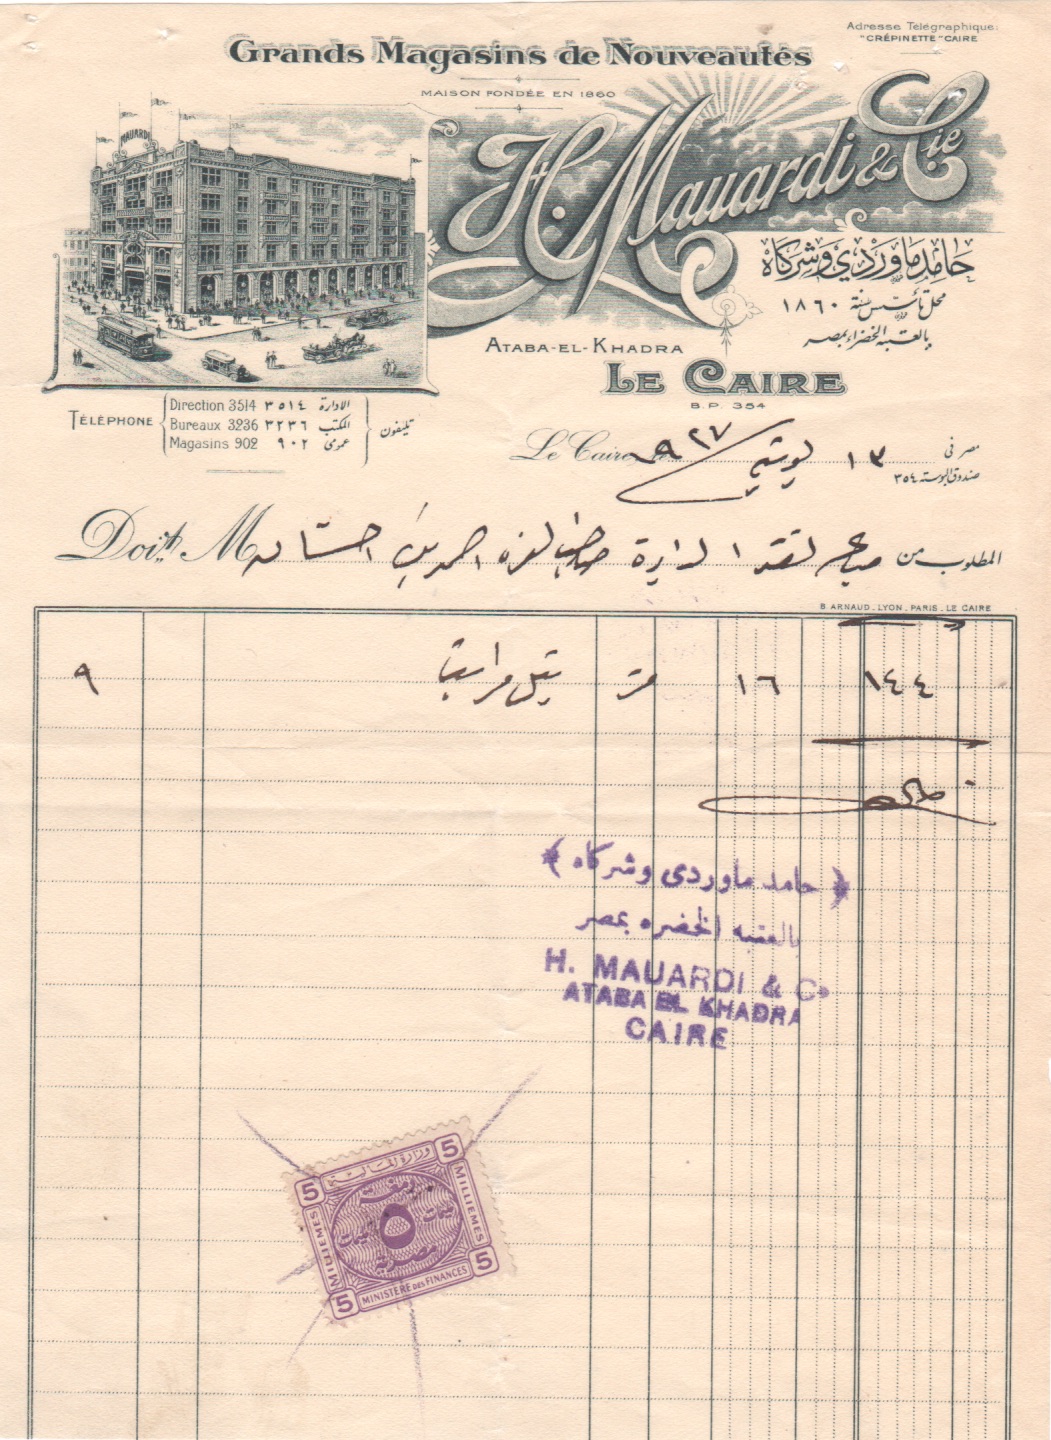 Adresse Télégraphique:
"CRÉPINETTE" CAIRE
Grands Magasins de Nouveautés
MAISON FONDÉE EN 1860
MAUARDI
H. Mauardi & Cie
حامد ماوردي وشركاه
محل تأسس سنة ١٨٦٠
بالعتبه الخضراء بمصر
ATABA-EL-KHADRA
LE CAIRE
B.P. 354
TÉLÉPHONE
Direction 3514 ٣٥١٤ الادارة
Bureaux 3236 ٣٢٣٦ المكتب
Magasins 902 ٩٠٢ عمومى
تليفون
Le Caire
مصر فى ١٣ يونيه ٩٢٧
صندوق البوسته ٣٥٤
Doit M
المطلوب من
B. ARNAUD. LYON. PARIS. LE CAIRE
١٤٤ ١٦ ٩
﴿ حامد ماوردى وشركاه ﴾
بالعتبه الخضره بمصر
H. MAUARDI & Co
ATABA EL KHADRA
CAIRE
5 وزارة المالية 5
MILLIEMES
٥
مصرية
MILLIEMES
5 MINISTERE DES FINANCES 5